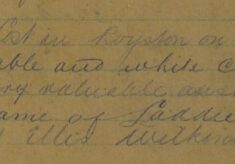 Lost in Royston on
able and white c
ry valuable and
ame of Laddie
Ellis Wilkins